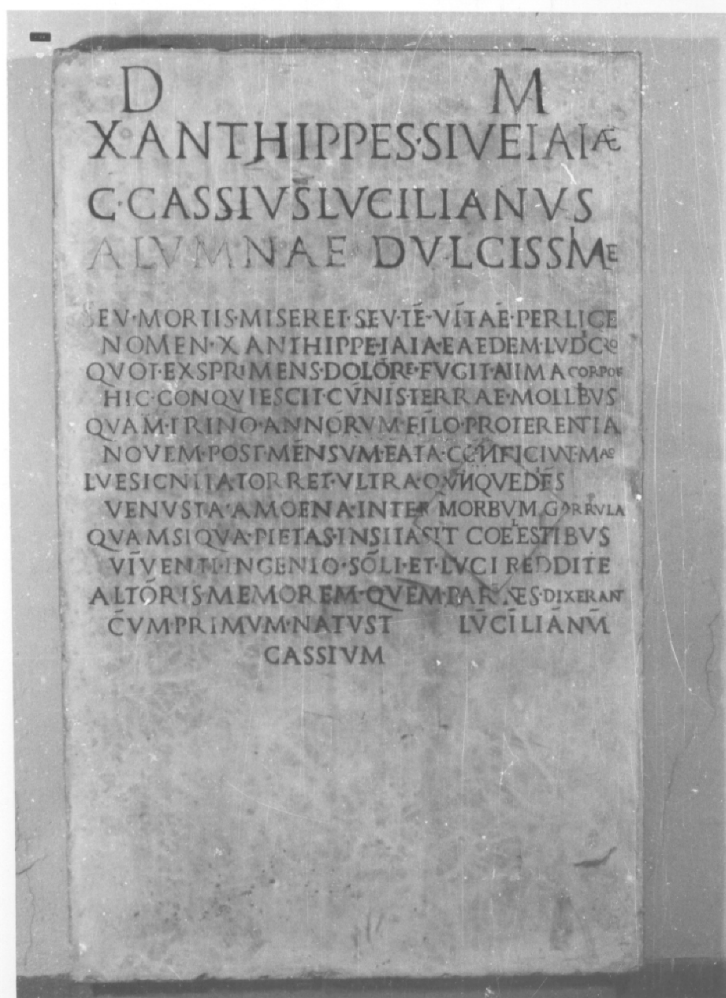 D M
XANTHIPPES·SIVE IAIAE
C·CASSIVS LVCILIANVS
ALVMNAE DVLCISSIMAE
SEV·MORTIS·MISERET·SEV·TE·VITAE·PERLICE
NOMEN·XANTHIPPE·IAIA·EAEDEM·LVDICRO
QVOT·EXSPRIMENS·DOLORE·FVGIT·AIMA CORPORE
HIC·CONQVIESCIT·CVNIS·TERRAE·MOLLIBVS
QVAM·TRINO·ANNORVM·FILO·PROTERENTIA
NOVEM·POST·MENSVM·FATA·CONFICIVNT·
LVES·IGNITA·TORRET·VLTRA·
VENVSTA·AMOENA·INTER MORBVM GARRVLA
QVAM·SIQVA·PIETAS·INSITAST COELESTIBVS
VIVENTI·INGENIO·SOLI·ET·LVCI REDDITE
ALTORIS·MEMOREM·QVEM·PARENTES·DIXERANT
CVM·PRIMVM·NATVST LVCILIANVM
CASSIVM